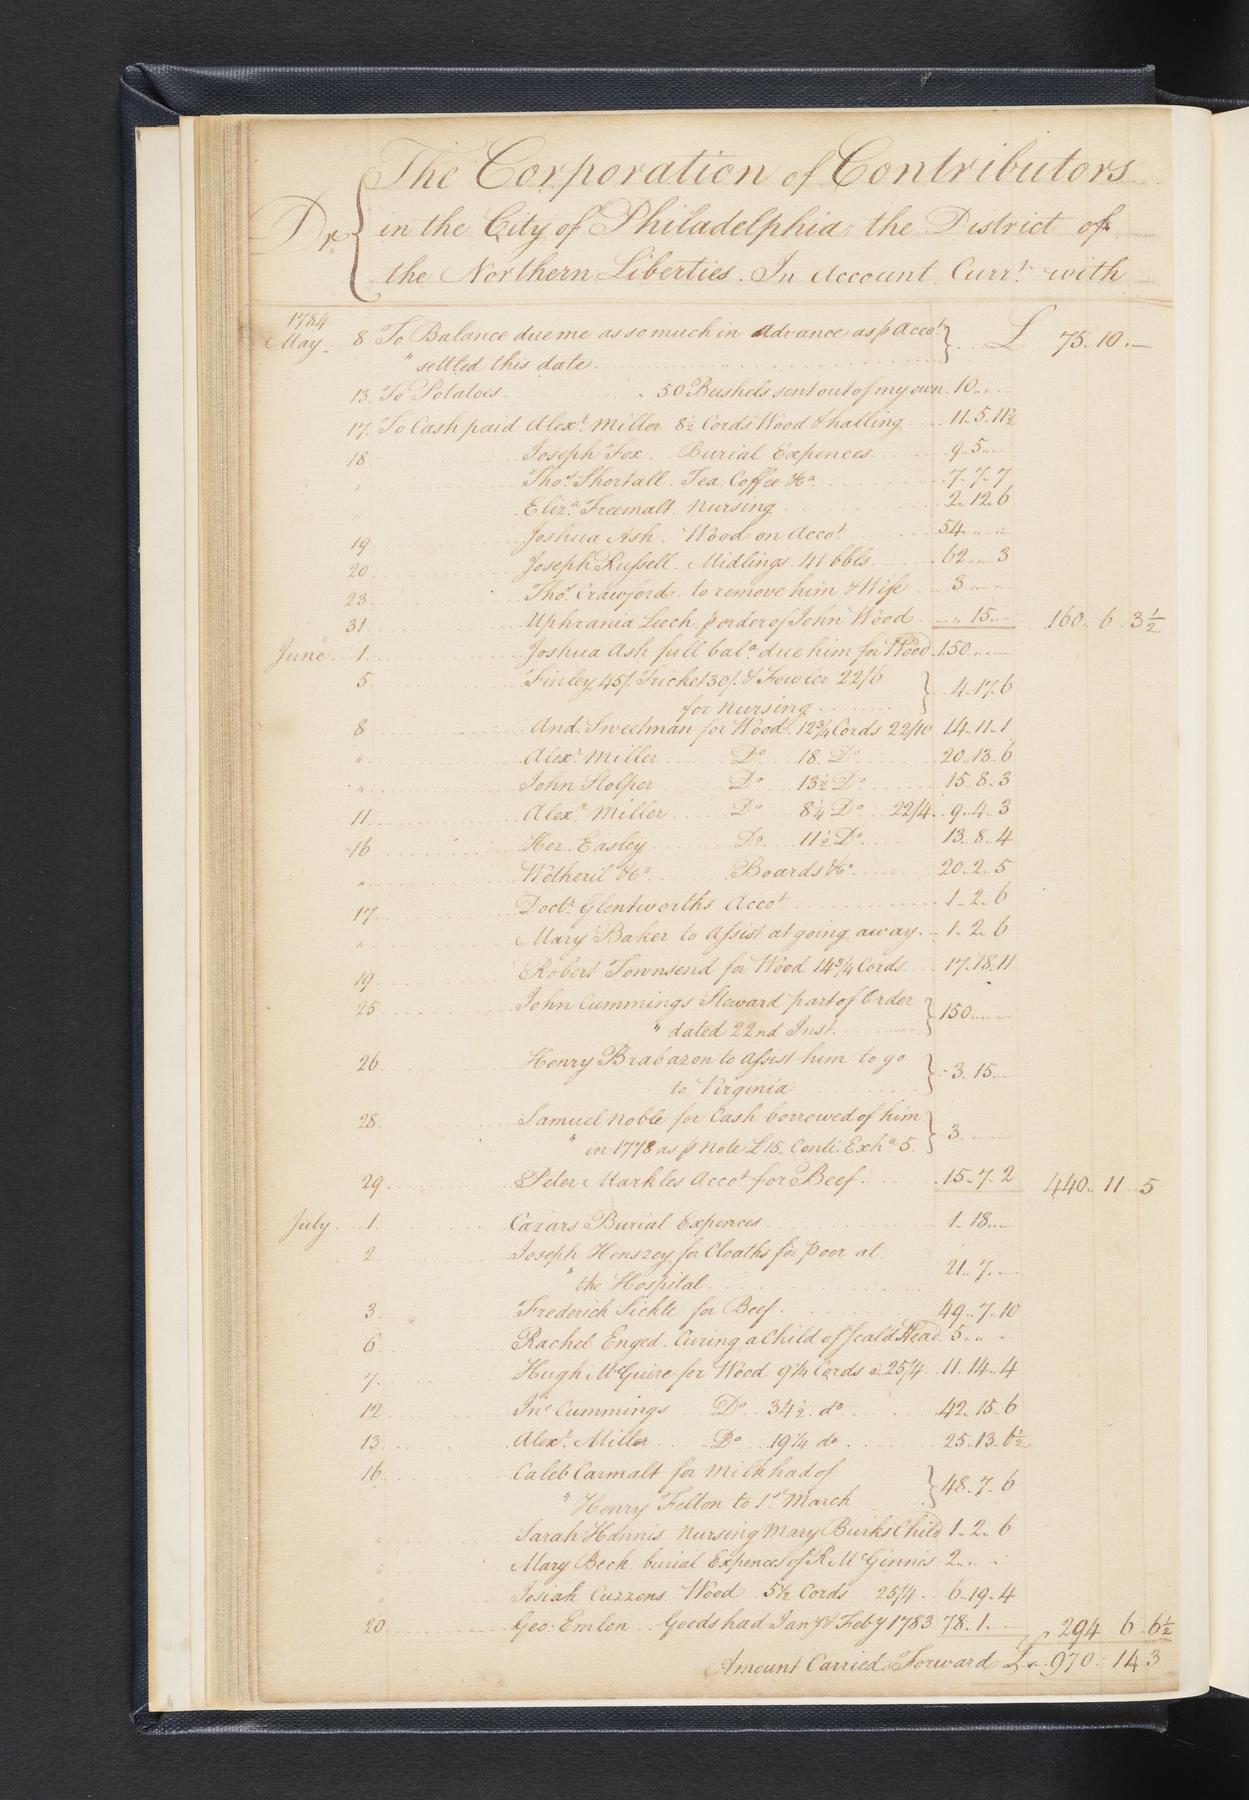 Dr. The Corporation of Contributors
in the City of Philadelphia, the District of
the Northern Liberties. In Account Currt. with
1784
May. 8 To Balance due me as so much in Advance as p Accot. £ 75..10..—
" settled this date
13. To Potatoes 50 Bushels sent out of my own. 10..
17. To Cash paid Alexr. Miller 8½ Cords Wood & halling 11..5..11½
18 Joseph Fox. Burial Expences 9..5..—
" Thos. Shortall. Tea Coffee &c. 7..7..7
" Eliza. Freemalt. Nursing 2..12..6
19 Joshua Ash. Wood on Accot. 54..
20 Joseph Russell. Midlings 41 bbls. 62..—..3
23 Thos. Crawford. to remove him & Wife 3..
31 Uphrania Leech. p order of John Wood 15.. 160..6..3½
June 1. Joshua Ash full bala. due him for Wood 150..
5 Finley 45/. Tricket 30/. & Fowler 22/6 4..17..6
for Nursing
8 And. Sweetman for Wood. 12¾ Cords 22/10 14..11..1
" Alexr. Miller Do. 18. Do. 20..13..6
" John Stolper Do. 13½ Do. 15..8..3
11 Alexr. Miller Do. 8¼ Do. 22/4. 9..4..3
16 Her. Easley Do. 11½ Do. 13..8..4
" Wetheril &Co. Boards &c. 20..2..5
17. Doctr. Glentworth's Accot. 1..2..6
" Mary Baker to Assist at going away. 1..2..6
19 Robert Townsend for Wood 14¾ Cords 17..18..11
25 John Cummings Steward part of Order 150..
" dated 22nd Inst.
26. Henry Brabazon to Assist him to go 3..15..—
to Virginia
28. Samuel Noble for Cash borrowed of him 3..
" in 1778 as p Note £15. Conti. Exha. 5.
29 Peter Markles Accot. for Beef 15..7..2 440..11..5
July 1. Cæzars Burial Expences 1..18..
2. Joseph Henszey for Cloaths for poor at 21..7..—
" the Hospital
3. Frederick Sickle for Beef 49..7..10
6. Rachel Enged. Curing a Child of scald Head. 5..
7. Hugh McGuire for Wood 9¼ Cords a 25/4 11..14..4
12 Jno. Cummings Do. 34½ do. 42..15..6
13. Alexr. Miller Do. 19¼ do. 25..13..6½
16 Caleb Carmalt for Milk had of 48..7..6
" Henry Felton to 1st. March
" Sarah Hannis. Nursing Mary Burks Child 1..2..6
" Mary Beck. burial Expences of R McGinnis 2..
" Josiah Cuzzens. Wood 5½ Cords 25/4 6..19..4
20 Geo: Emlen Goods had Jany & Feby 1783 78..1..— 294 6 6½
Amount Carried Forward £ 970..14..3